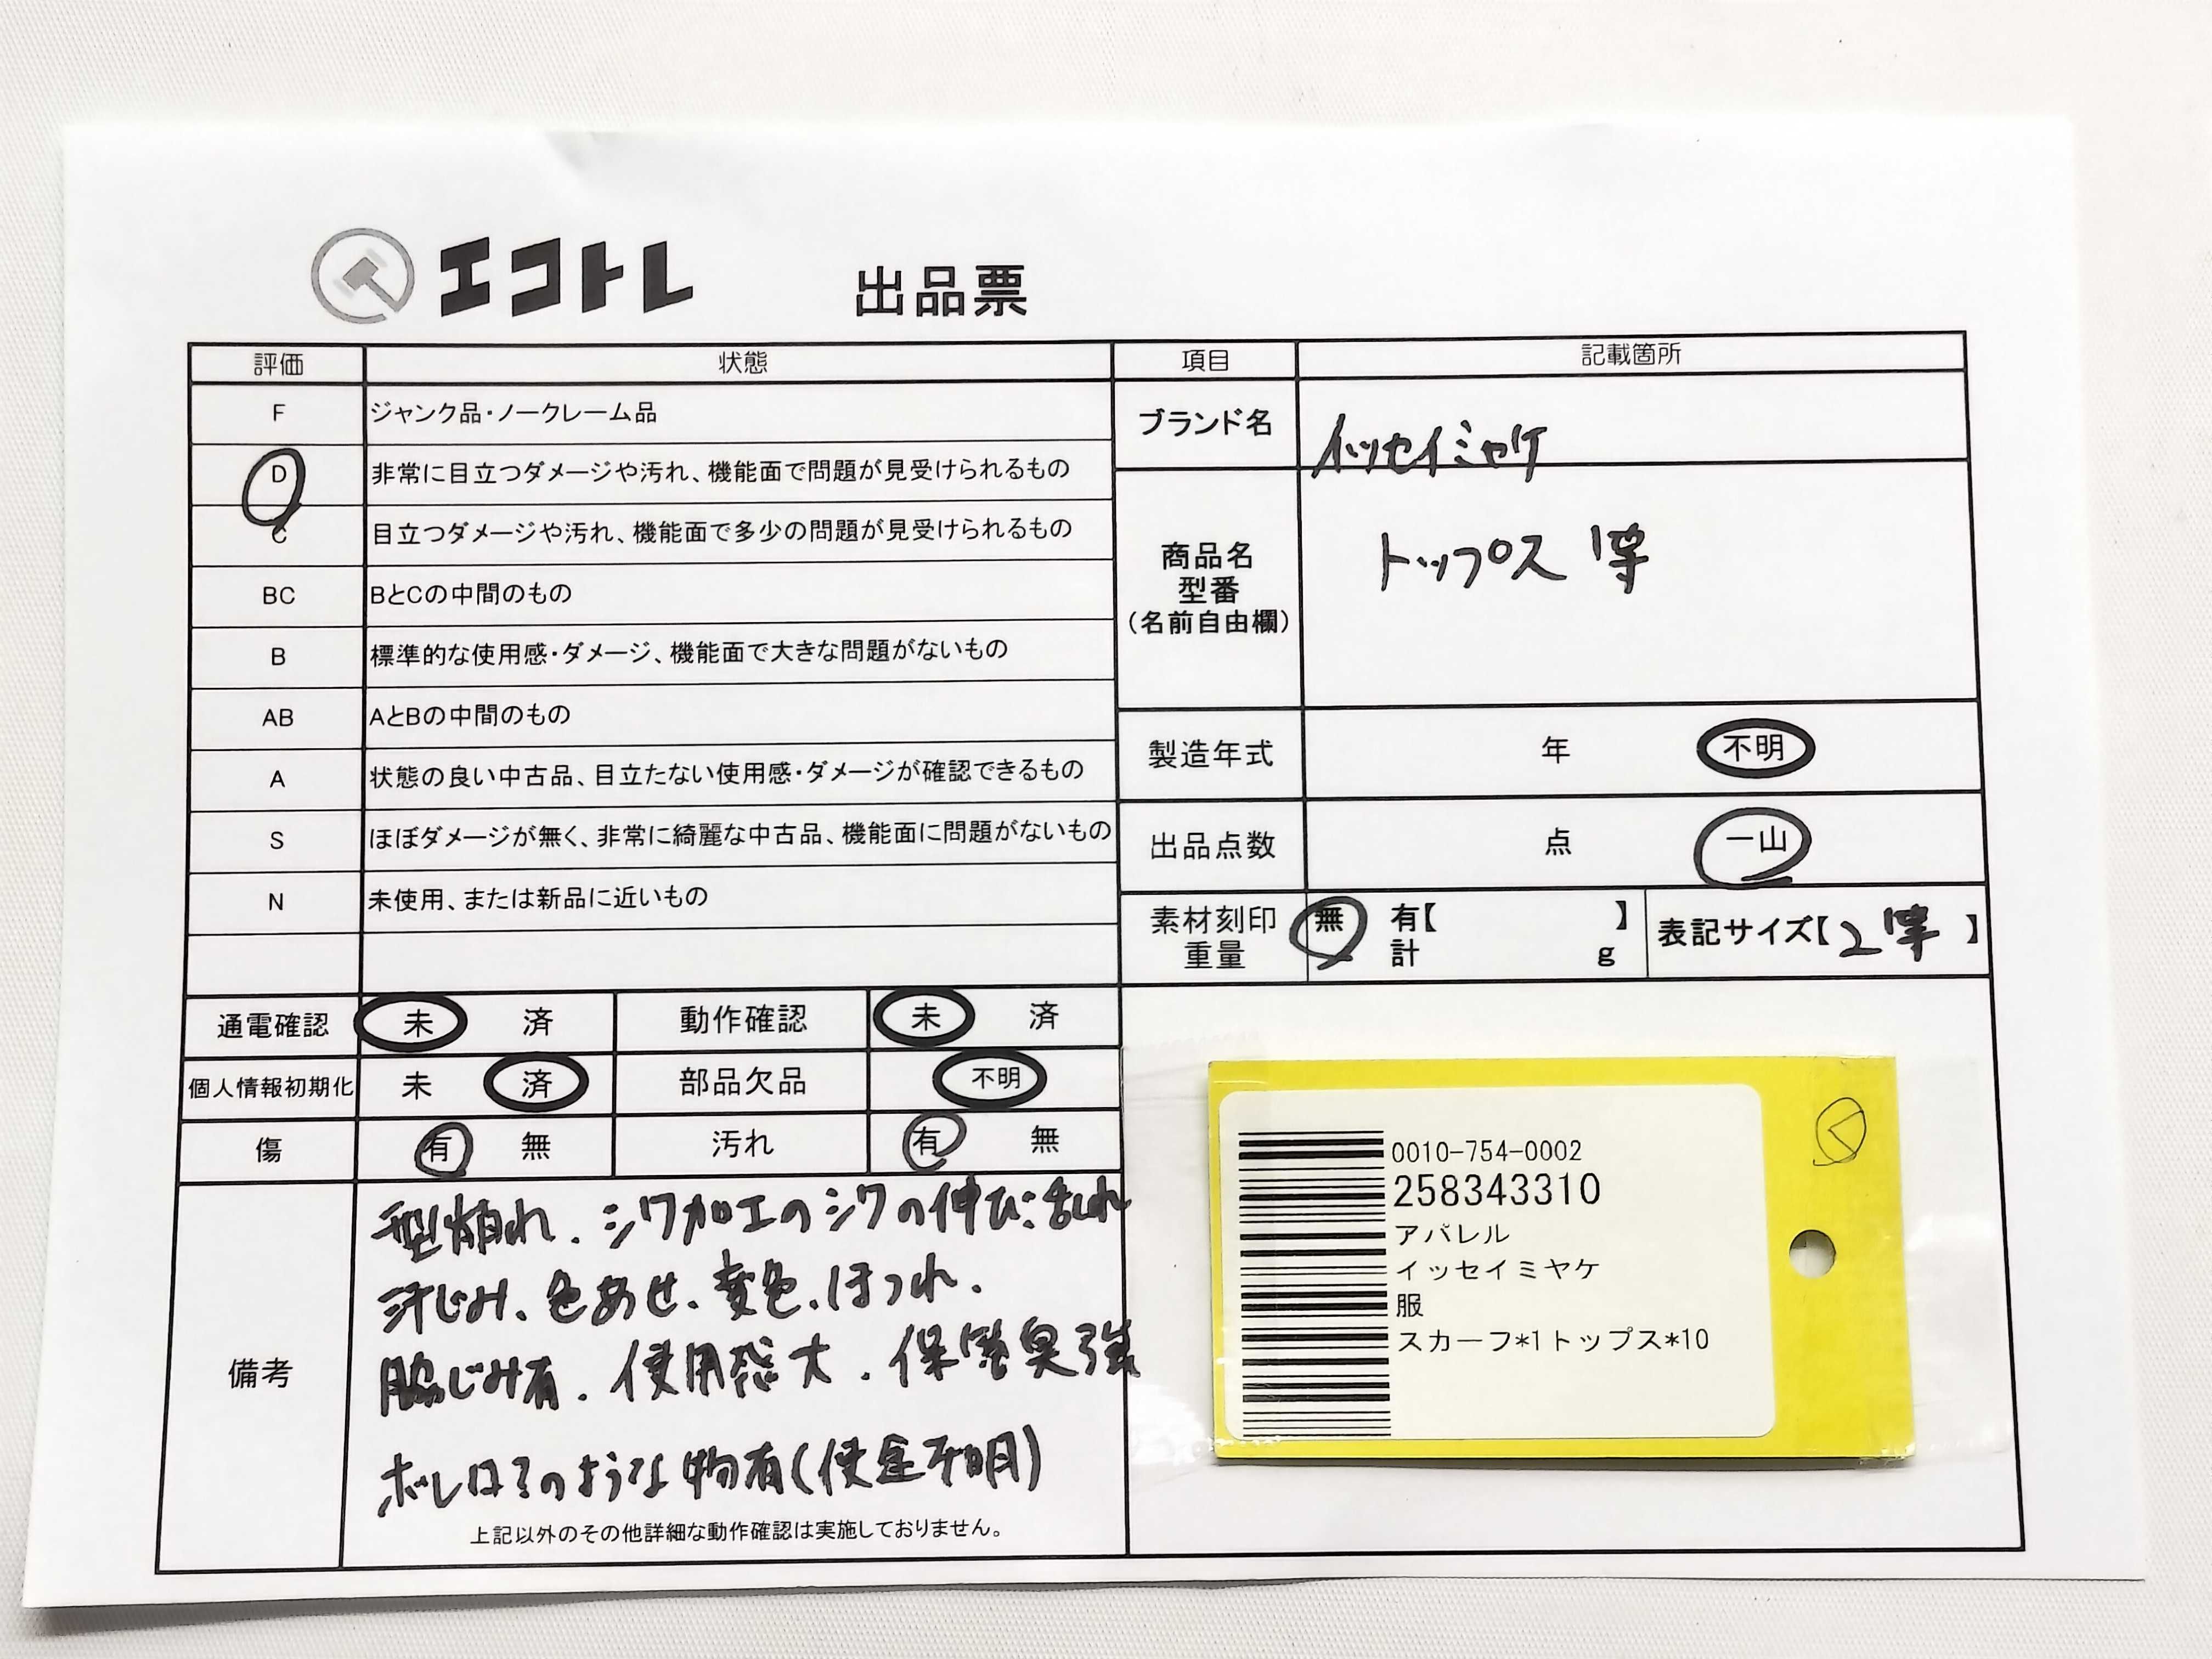 エコトレ 出品票
評価 状態 項目 記載箇所
F ジャンク品・ノークレーム品
D 非常に目立つダメージや汚れ、機能面で問題が見受けられるもの
C 目立つダメージや汚れ、機能面で多少の問題が見受けられるもの
BC BとCの中間のもの
B 標準的な使用感・ダメージ、機能面で大きな問題がないもの
AB AとBの中間のもの
A 状態の良い中古品、目立たない使用感・ダメージが確認できるもの
S ほぼダメージが無く、非常に綺麗な中古品、機能面に問題がないもの
N 未使用、または新品に近いもの
ブランド名 イッセイミヤケ
商品名
型番
(名前自由欄)
トップス 等
製造年式 年 不明
出品点数 点 一山
素材刻印 無 有【 】
重量 計 g
表記サイズ【2等】
通電確認 未 済 動作確認 未 済
個人情報初期化 未 済 部品欠品 不明
傷 有 無 汚れ 有 無
備考
型崩れ、シワ加工のシワの伸び、乱れ
汗じみ、色あせ、変色、ほつれ、
脇じみ有、使用感大、保管臭強
ボレロ?のような物有(使途不明)
上記以外のその他詳細な動作確認は実施しておりません。
0010-754-0002
258343310
アパレル
イッセイミヤケ
服
スカーフ*1トップス*10